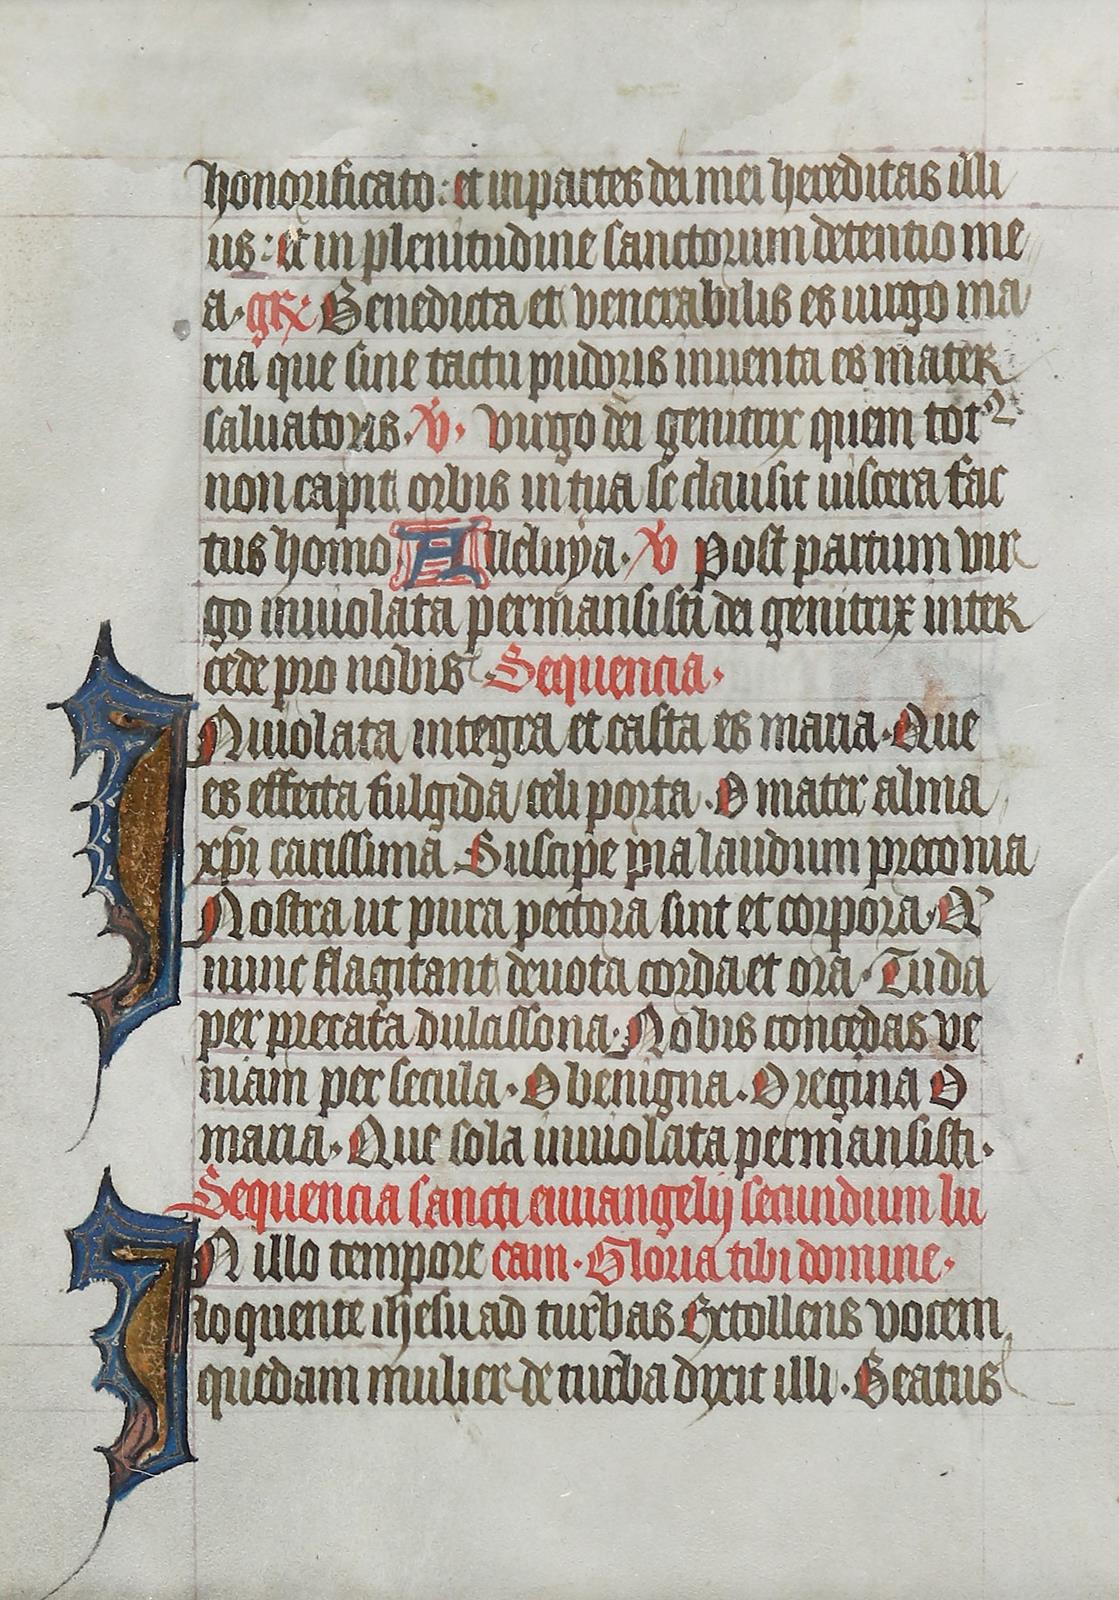 honorificato: et in partes dei mei hereditas illi
us: et in plenitudine sanctorum detentio me
a. gR: Benedicta et venerabilis es uirgo ma
ria que sine tactu pudoris inuenta es mater
saluatoris. V. Virgo dei genitrix quem tot9
non capit orbis in tua se clausit uiscera fac
tus homo Alleluya. V Post partum vir
go inuiolata permansisti dei genitrix inter
cede pro nobis Sequencia.
INuiolata integra et casta es maria. Que
es effecta fulgida celi porta. O mater alma
xpi carissima Suscipe pia laudum preconia
Nostra ut pura pectora sint et corpora. Q
nunc flagitant deuota corda et ora. Tuda
per precata dulcissona. Nobis concedas ve
niam per secula. O benigna. O regina O
maria. Que sola inuiolata permansisti.
Sequencia sancti euuangelij secundum lu
IN illo tempore cam. Gloria tibi domine.
loquente ihesu ad turbas Extollens vocem
quedam mulier de turba dixit illi. Beatus